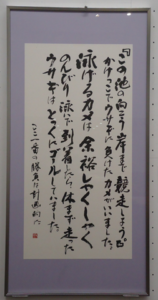 『この池の向こう岸まで競走しよう』と
かけっこでウサギに負けたカメがいいました。
泳げるカメは余裕しゃくしゃく
のんびり泳いで到着したら休まず走った
ウサギはとっくにゴールしていました。